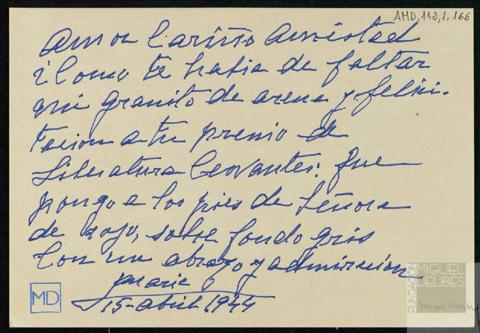 AMD,112,1,166
Amor Cariño Amistad
¿Como te habia de faltar
mi granito de arena y felici-
tacion a tu premio de
Literatura Cervantes: que
pongo a los pies de Señora
de rojo, sobre fondo gris
Con un abrazo y admiracion
15-abril 1944
MD
FUNDACIÓN
MIGUEL
DELIBES